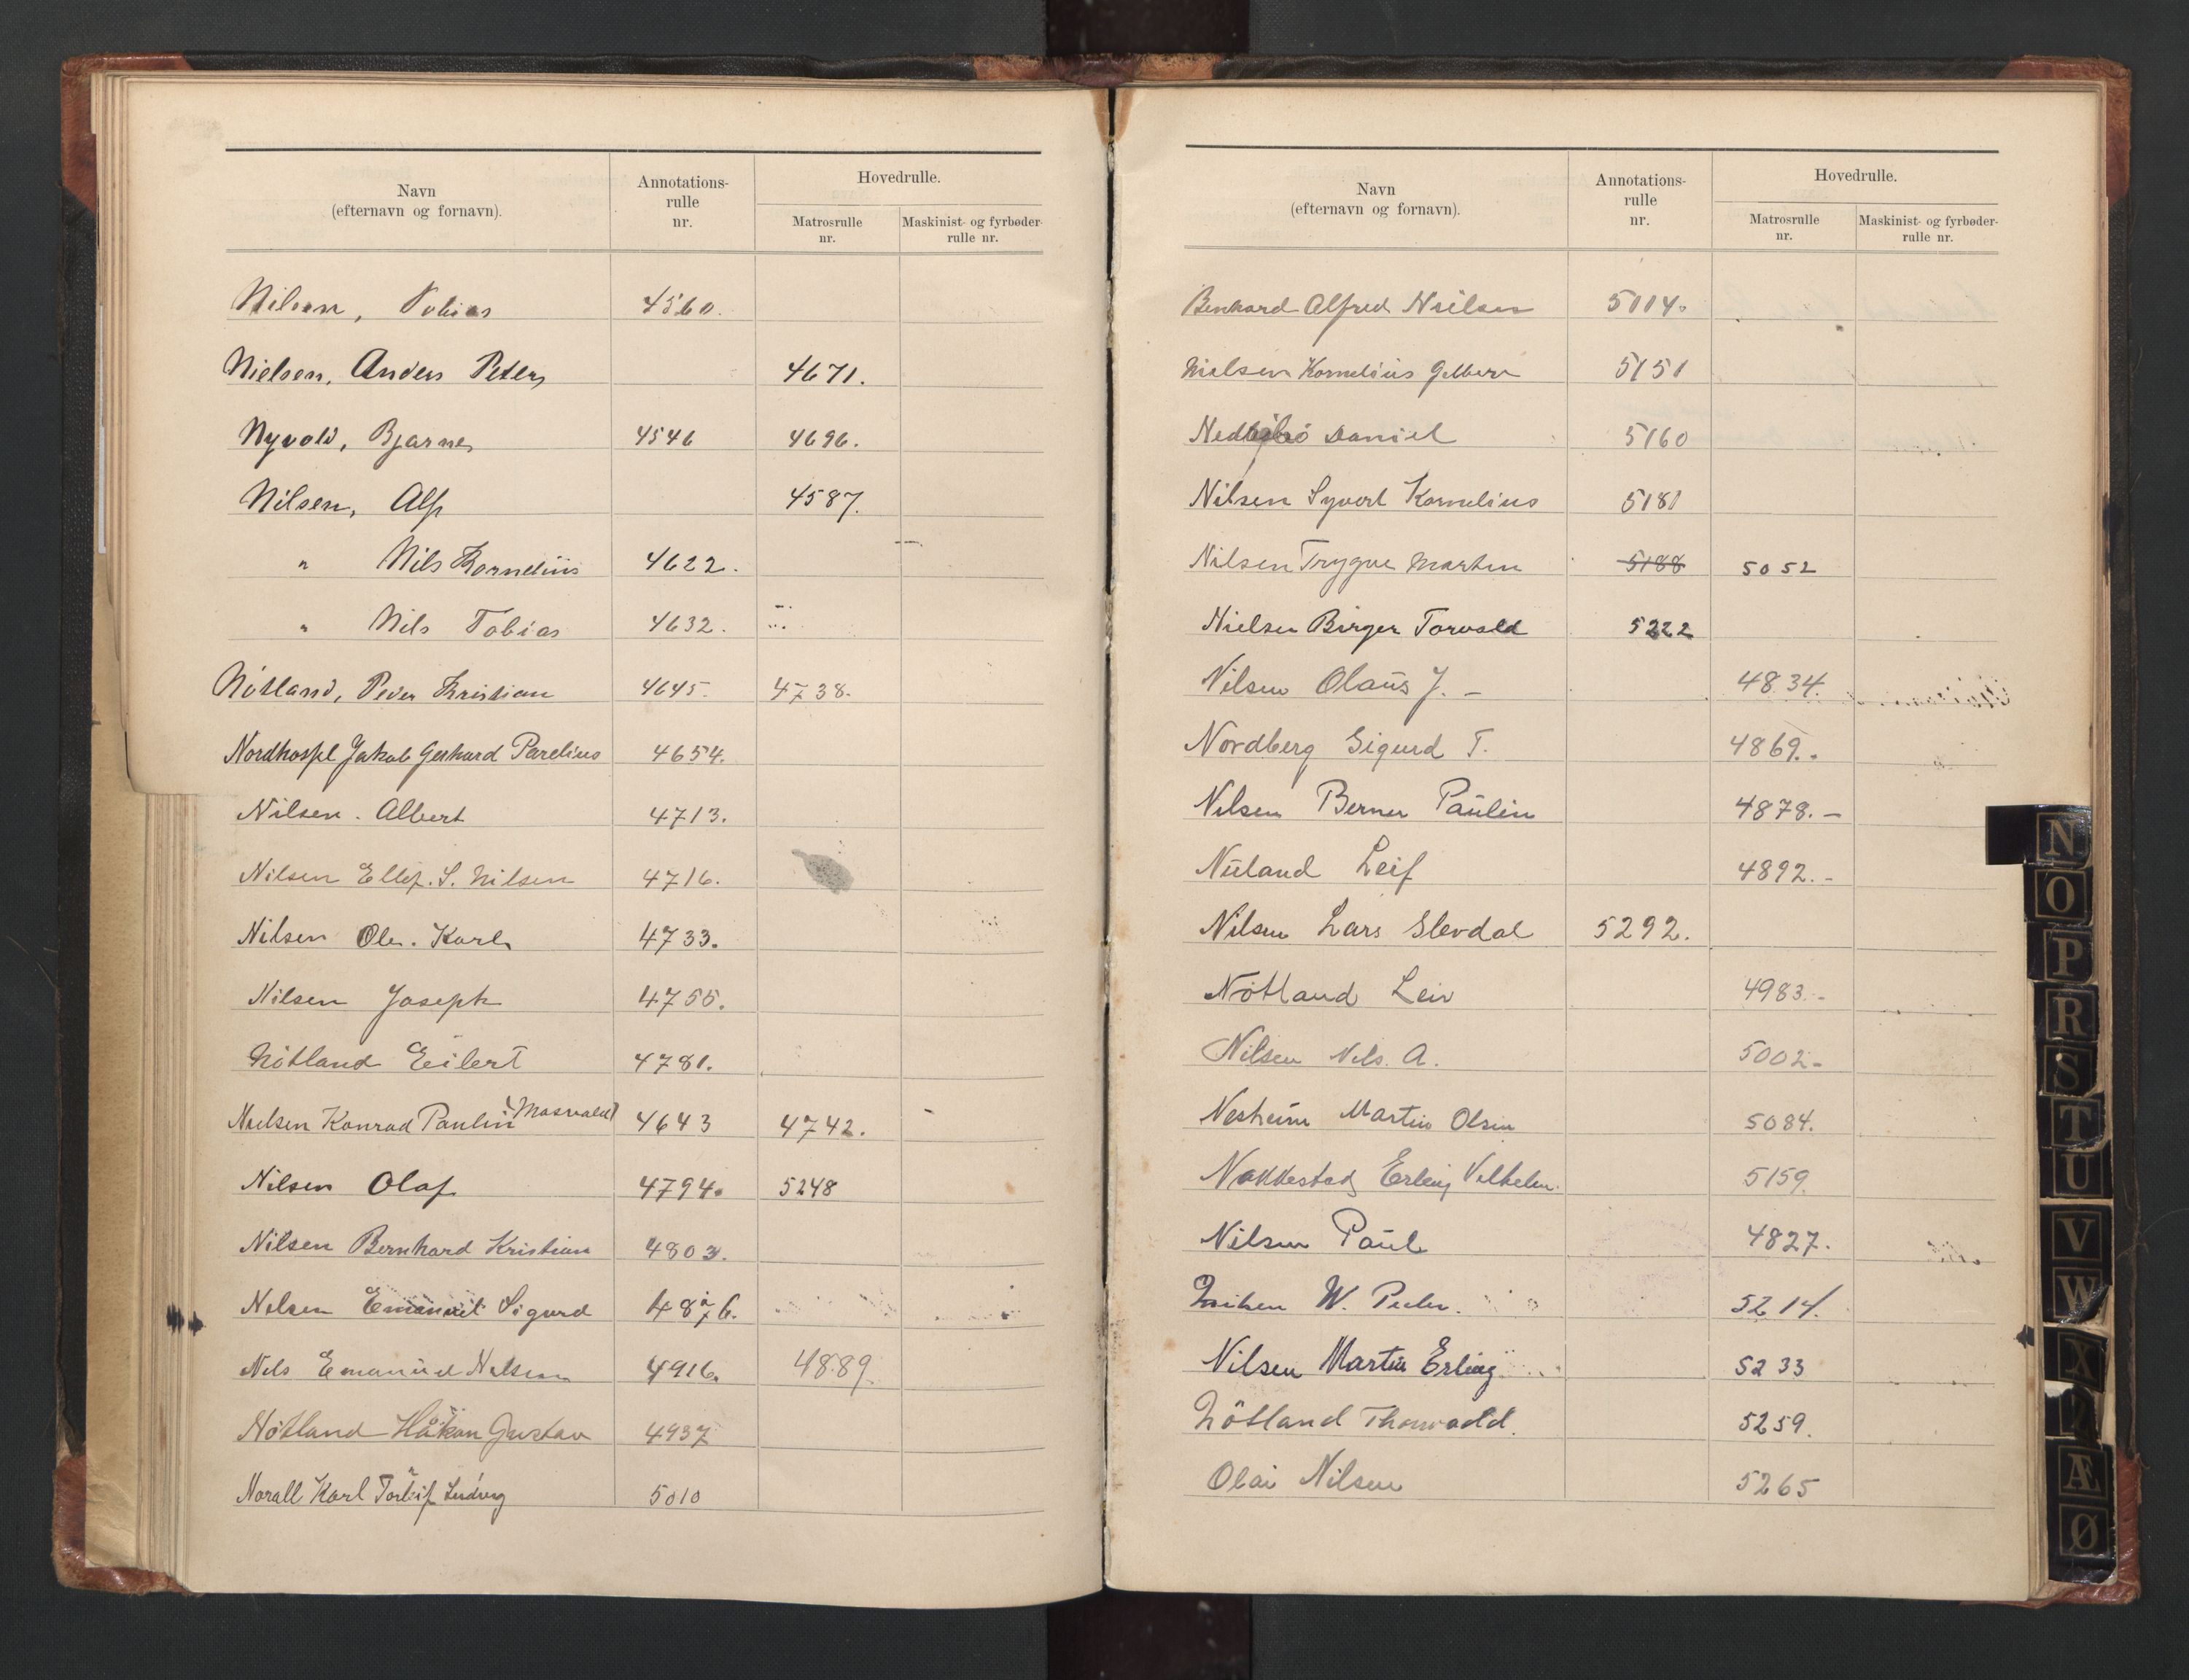 Navn
(efternavn og fornavn).
Annotations-
rulle
nr.
Hovedrulle.
Matrosrulle
nr.
Maskinist- og fyrbøder-
rulle nr.
Nilsen, Tobias 4560.
Nielsen, Anders Peter 4671.
Nyvold, Bjarne 4546 4696.
Nilsen, Alf 4587.
" Nils Kornelius 4622.
" Nils Tobias 4632.
Nötland, Peder Kristian 4645. 4738.
Jakob Gerhard Parelius 4654.
Nilsen. Albert 4713.
Nilsen Ellef. S. Nilsen 4716.
Nilsen Ole. Karl 4733.
Nilsen Joseph 4755.
Nötland Eilert 4781.
Nielsen Konrad Paulin (Mosvald) 4643 4742.
Nilsen Olaf 4794. 5248
Nilsen Bernhard Kristian 4803.
Nilsen Emanuel Sigurd
Nils Emanuel Nilsen 4916. 4889
Nötland Håkon Gustav 4937
Norall Karl Torleif Ludvig 5010
Navn
(efternavn og fornavn).
Annotations-
rulle
nr.
Hovedrulle.
Matrosrulle
nr.
Maskinist- og fyrbøder-
rulle nr.
Benhard Alfred Nielsen 5114.
Nielsen Kornelius 5151
Daniel 5160
Nilsen Syvert Kornelius 5181
Nilsen Trygve Martin 5188 5052
Nielsen Birger Torvald 5222
Nilsen Olaus J. - 4834.
Nordberg Sigurd T. 4869.
Nilsen Berner Paulin 4878.-
Nuland Leif 4892.-
Nilsen Lars Slevdal 5292.
Nötland Leiv 4983.-
Nilsen Nils. A. 5002-
Nesheim Martin Olsen 5084.
Nakkestad Erling Vilhelm. 5159.
Nilsen Paul 4827.
W. Peder. 5214.
Nilsen Martin Erling 5233
Nötland Thorvald. 5259.
Olai Nilsen 5265
N
O
P
R
S
T
U
V
W
X
Æ
Ø